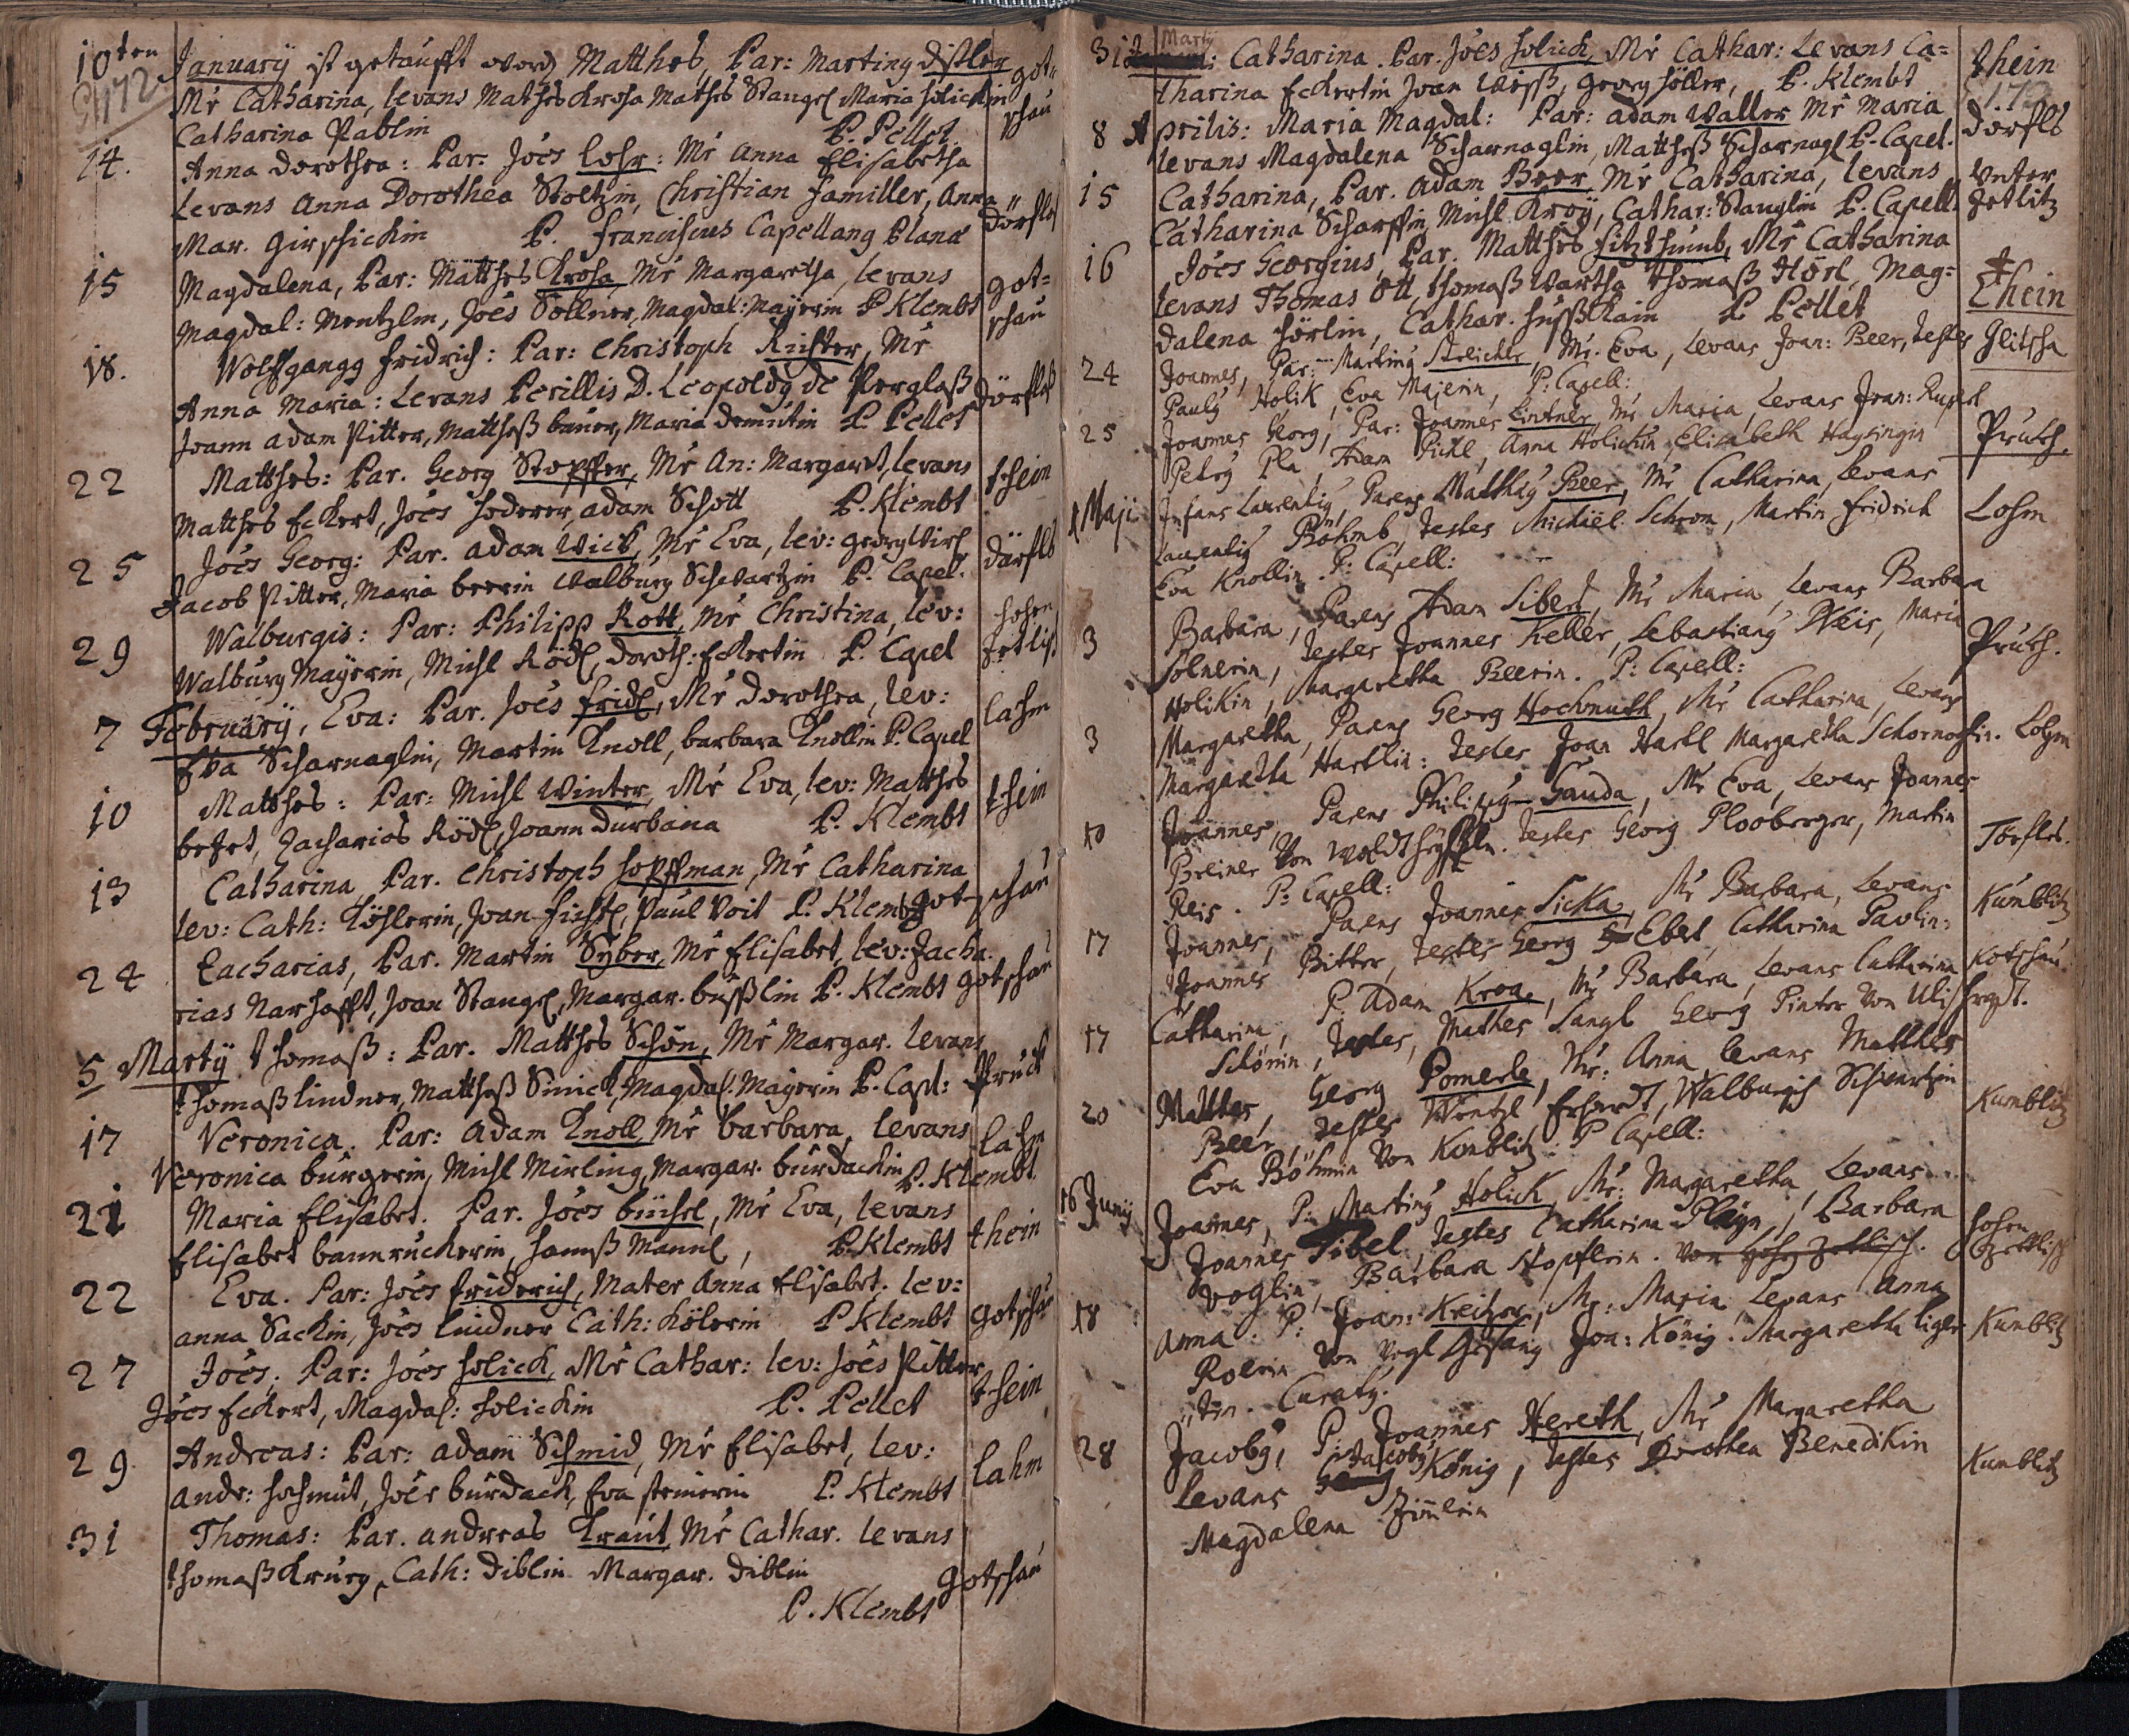 10ten Januarÿ ist getaufft word Matthes, Par: Marting Distler got=
172
Mr Catharina, levans Mathes Krosa Mathes Stangl Maria Holickin schau
Catharina Pablin P. Pellet
14. Anna Dorothea: Par: Joës Lohr: Mr Anna Elisabetha
Levans Anna Dorothea Stoltzin, Christian Familler, Anna Dörfles
Mar. Girschickin P. Franciscus Capellang Planae
15 Magdalena, Par: Matthes Krosa Mr Margaretha, levans got=
Magdal: Mentzlin, Joës Söllner, Magdal: Mayerin P Klembt schau
18. Wolfgangg Fridrich: Par: Christoph Richter, Mr
Anna Maria: Levans Perillis D. Leopoldg de Perglaß Dörfles
Joann Adam Pitter, Mattheß bauer, Maria Demutin P. Pellet
22 Matthes: Par. Georg Stopffer, Mr An: Margaret, levans thein
Matthes Eckert, Joës Hoderer, Adam Schott P. Klembt
25 Joës Georg: Par. Adam Wick, Mr Eva, lev: Georg Wirt Dörfles
Jacob Pitter, Maria beerin Walburg Schwartzin P. Capel.
29 Walburgis: Par: Philipp Rott, Mr Christina, lev: hohen
Walburg Mayerin, Michl Rödl, Doroth: Eckertin P. Capel Zetlisch
7 Februarÿ, Eva: Par. Joës Fridl, Mr Dorothea, lev: lahm
Eva Scharnaglin, Martin Knoll, barbara Knollin P. Capel
10 Matthes: Par: Michl Winter, Mr Eva, lev: Matthes thein
Zacharias Rödl, Joann Durbana P. Klembt
13 Catharina Par. Christoph Hopffman, Mr Catharina
lev: Cath: Köhlerin, Joan Fichtl, Paul Voit P. Klembt gotschau
24 Zacharias, Par. Martin Syber, Mr Elisabet, lev: Zacha
rias Narhafft, Joan Stangl, Margar. büßlin P. Klembt gotschau
5 Martÿ thomaß: Par. Matthes Schön, Mr Margar. levans
thomaß lindner, Mattheß Simich, Magdal: Mayerin P. Capl: Pruch
17 Veronica. Par: Adam Knoll Mr barbara, levans lahm
Veronica burgerin, Michl Mirling, Margar. burdachin P. Klembt
21 Maria Elisabet. Par. Joës büchel, Mr Eva, levans
Elisabet bannruckerin, Hannß Mannl, P. Klembt thein
22 Eva. Par: Joës Friderich, Mater Anna Elisabet. lev:
anna Sackin, Joës lindner Cath: Kölerin P Klembt gotschau
27 Joës: Par: Joës Holick, Mr Cathar: lev: Joës Pitter
Joës Eckert, Magdal: Holickin P. Pellet thein
29 Andreas: Par: adam Schmid, Mr Elisabet, lev:
andr: Hohmut, Joës burdach, Eva steinerin P. Klembt lahm
31 Thomas: Par. andreas Kraut Mr Cathar. levans
thomaß Krurg, Cath: Diblin Margar. Diblin gotschau
P. Klembt
Martÿ
31 Catharina. Par. Joës Holick, Mr Cathar: Levans Ca= thein
tharina Eckertin Joan Weyß, Georg Höller, P. Klembt 173
8 Aprilis: Maria Magdal: Par: adam Waller Mr Maria Dorfles
levans Magdalena Scharnaglin, Mattheß Scharnagl P. Capel.
15 Catharina, Par. Adam Beer, Mr Catharina, levans Unter
Catharina Scharffin, Michl Kroÿ, Cathar: Stanglin P. Capell. Zetlitz
16 Joës Georgius, Par. Matthes Fitzthumb, Mr Catharina
levans Thomas Ott, thomaß Wartha thomaß Hörl, Mag= Thein
dalena Hörlin, Cathar. P. Pellet
24 Joannes, Par: Marting Streichler, Mr. Eva, Levans Joan: Beer, Testes Glitscha
Paulg Holik, Eva Majerin, P: Capell:
25 Joannes Georg, Par: Joannes Lintner, Mr Maria, Levans Joan: Ruppert
Petrg Pla, Adam Pickl, Anna Holickin, Elisabeth Haylingin Prutsh.
1 Maji Infans Laurentig, Parens Mathÿ Beer, Mr Catharina, Levans
Laurentig Böhmb, Testes Michäel Schron, Martin Fridrich Lohm
Eva Knollin. P: Capell:
3 Barbara, Parens Adam Siber, Mr Maria, Levans Barbara
Solnerin, Testes Joannes Keller, Sebastiang Weis, Maria Prutsh.
Holikin, Margaretha Beerin. P: Capell:
3 Margaretha, Parens Georg Hochmuth, Mr Catharina, Levans
Margaretha Hartlin: Testes Joan Hartl Margaretha Schornoglin. Lohm
10 Joannes, Parens Philipg Gauda, Mr Eva, Levans Joannes
Breiner Von Testes Georg Plooberger, Martin Törfles.
Reis. P: Capell:
17 Joannes, Parens Joannes Sicka, Mr Barbara, Levans Kumblitz
Joannes Bitter, Testes Georg Ebert, Catharina Paulin:
17 Catharina, P. Adam Kroa, Mr Barbara, Levans Catharina Kotshau.
Schönin, Testes, Mathes Sangl Georg Pinter Von
20 Matthes, Georg Pomerle, Mr: Anna, levans Matthes
Beer, Testes Wentzl Erhardt, Walburgis Schwartzin Kumblitz
Eva Böhmin Von Konblitz: P Capell:
16 Junÿ Joannes, P: Marting Holick, Mr: Margaretha, Levans
Joannes Sibel, Testes Catharina Playn, Barbara hohen
Voglin, Barbara Stopflerin. Von hohen Zettlisch. Zettlisch
18 Anna: P: Joan: Kreitzer, Mr: Maria, Levans Anna
Rolerin Von Vogl Gesang Joa: König. Margaretha Liger Kumblitz
in. Curatg.
28 Jacobg, P: Joannes Hereth, Mr Margaretha
Levans Jacobg König, Testes Dorothea Benedikin Kumblitz
Magdalena Zimlerin